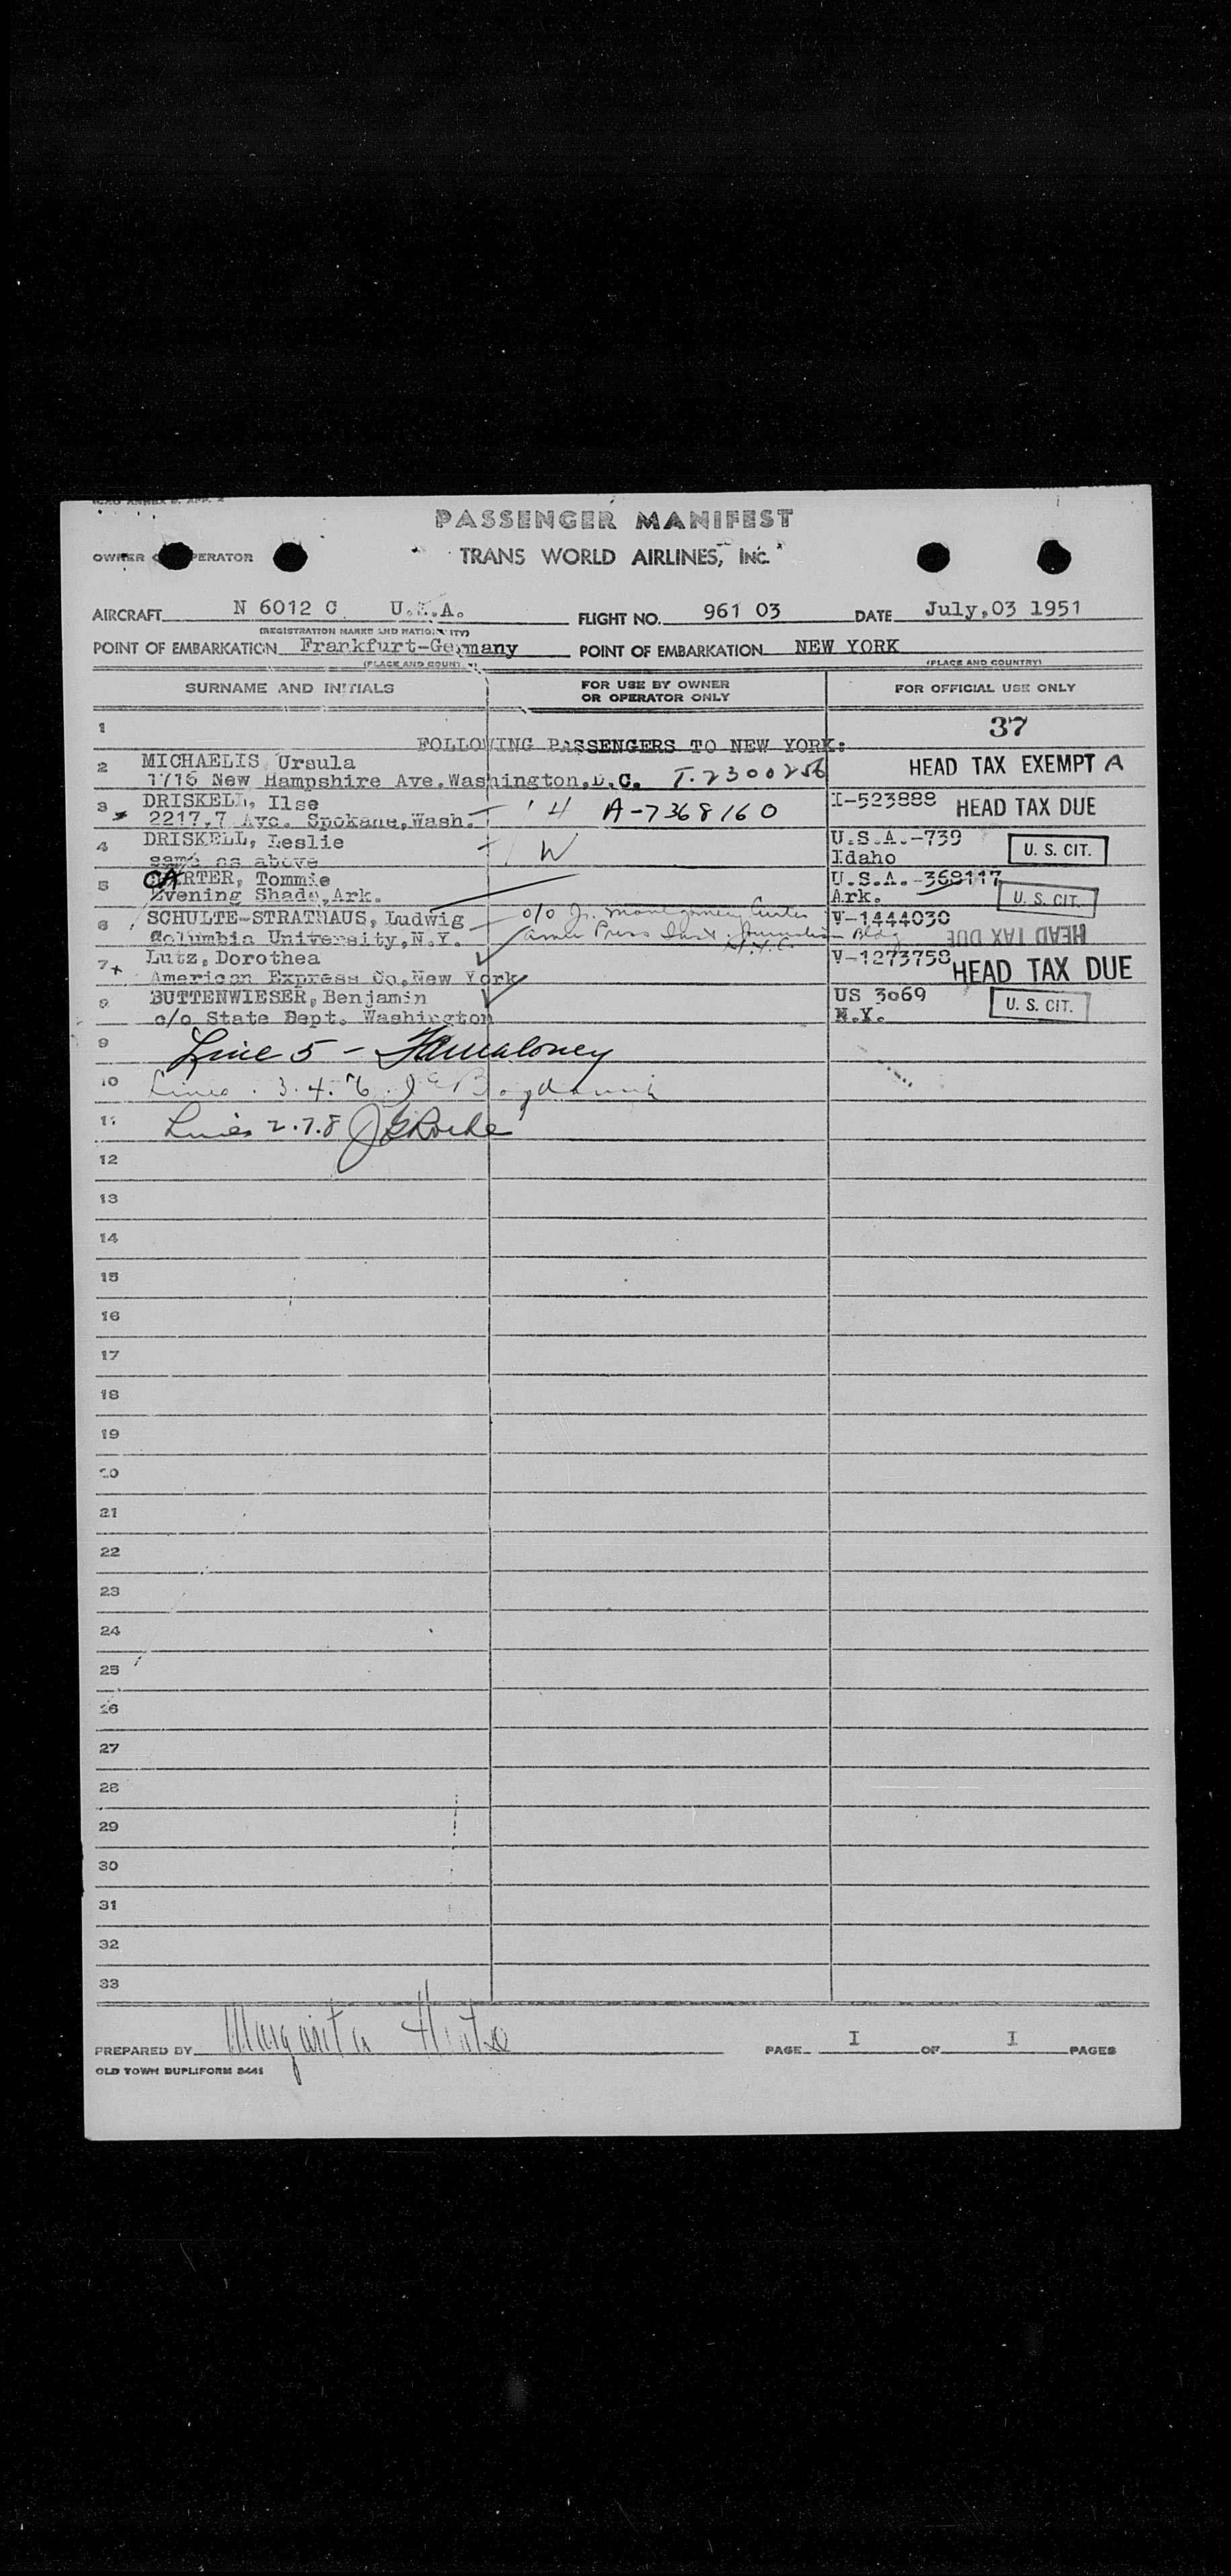 ICAO ANNEX 9, APP. 2
PASSENGER MANIFEST
OWNER OPERATOR
TRANS WORLD AIRLINES, INC.
AIRCRAFT N 6012 C U.S.A. FLIGHT NO. 961 03 DATE July,03 1951
(REGISTRATION MARKS AND NATIONALITY)
POINT OF EMBARKATION Frankfurt-Germany POINT OF EMBARKATION NEW YORK
(PLACE AND COUNTRY) (PLACE AND COUNTRY)
SURNAME AND INITIALS FOR USE BY OWNER OR OPERATOR ONLY FOR OFFICIAL USE ONLY
1 37
FOLLOWING PASSENGERS TO NEW YORK:
2 MICHAELIS Ursula HEAD TAX EXEMPT A
1716 New Hampshire Ave.Washington,D.C. T-2300256
3 DRISKELL, Ilse 4 A-7368160 I-523888 HEAD TAX DUE
2217.7 Ave. Spokane,Wash.
4 DRISKELL, Leslie W U.S.A.-739 U. S. CIT.
same as above Idaho
5 CARTER, Tommie U.S.A.-368117
Evening Shade,Ark. Ark. U. S. CIT.
6 SCHULTE-STRATHAUS, Ludwig c/o J. Montgomery Curtis V-1444030
Columbia University,N.Y. Amer Press Inst. Journalism Bldg HEAD TAX DUE
N.Y.C.
7 Lutz, Dorothea V-1273758 HEAD TAX DUE
American Express Co,New York
8 BUTTENWIESER, Benjamin US 3069 U. S. CIT.
c/o State Dept. Washington N.Y.
9 Line 5 - Maloney
10 Lines 3.4.6
11 Lines 2.7.8 J E Roche
12
13
14
15
16
17
18
19
20
21
22
23
24
25
26
27
28
29
30
31
32
33
PREPARED BY Margarita PAGE I OF I PAGES
OLD TOWN DUPLIFORM